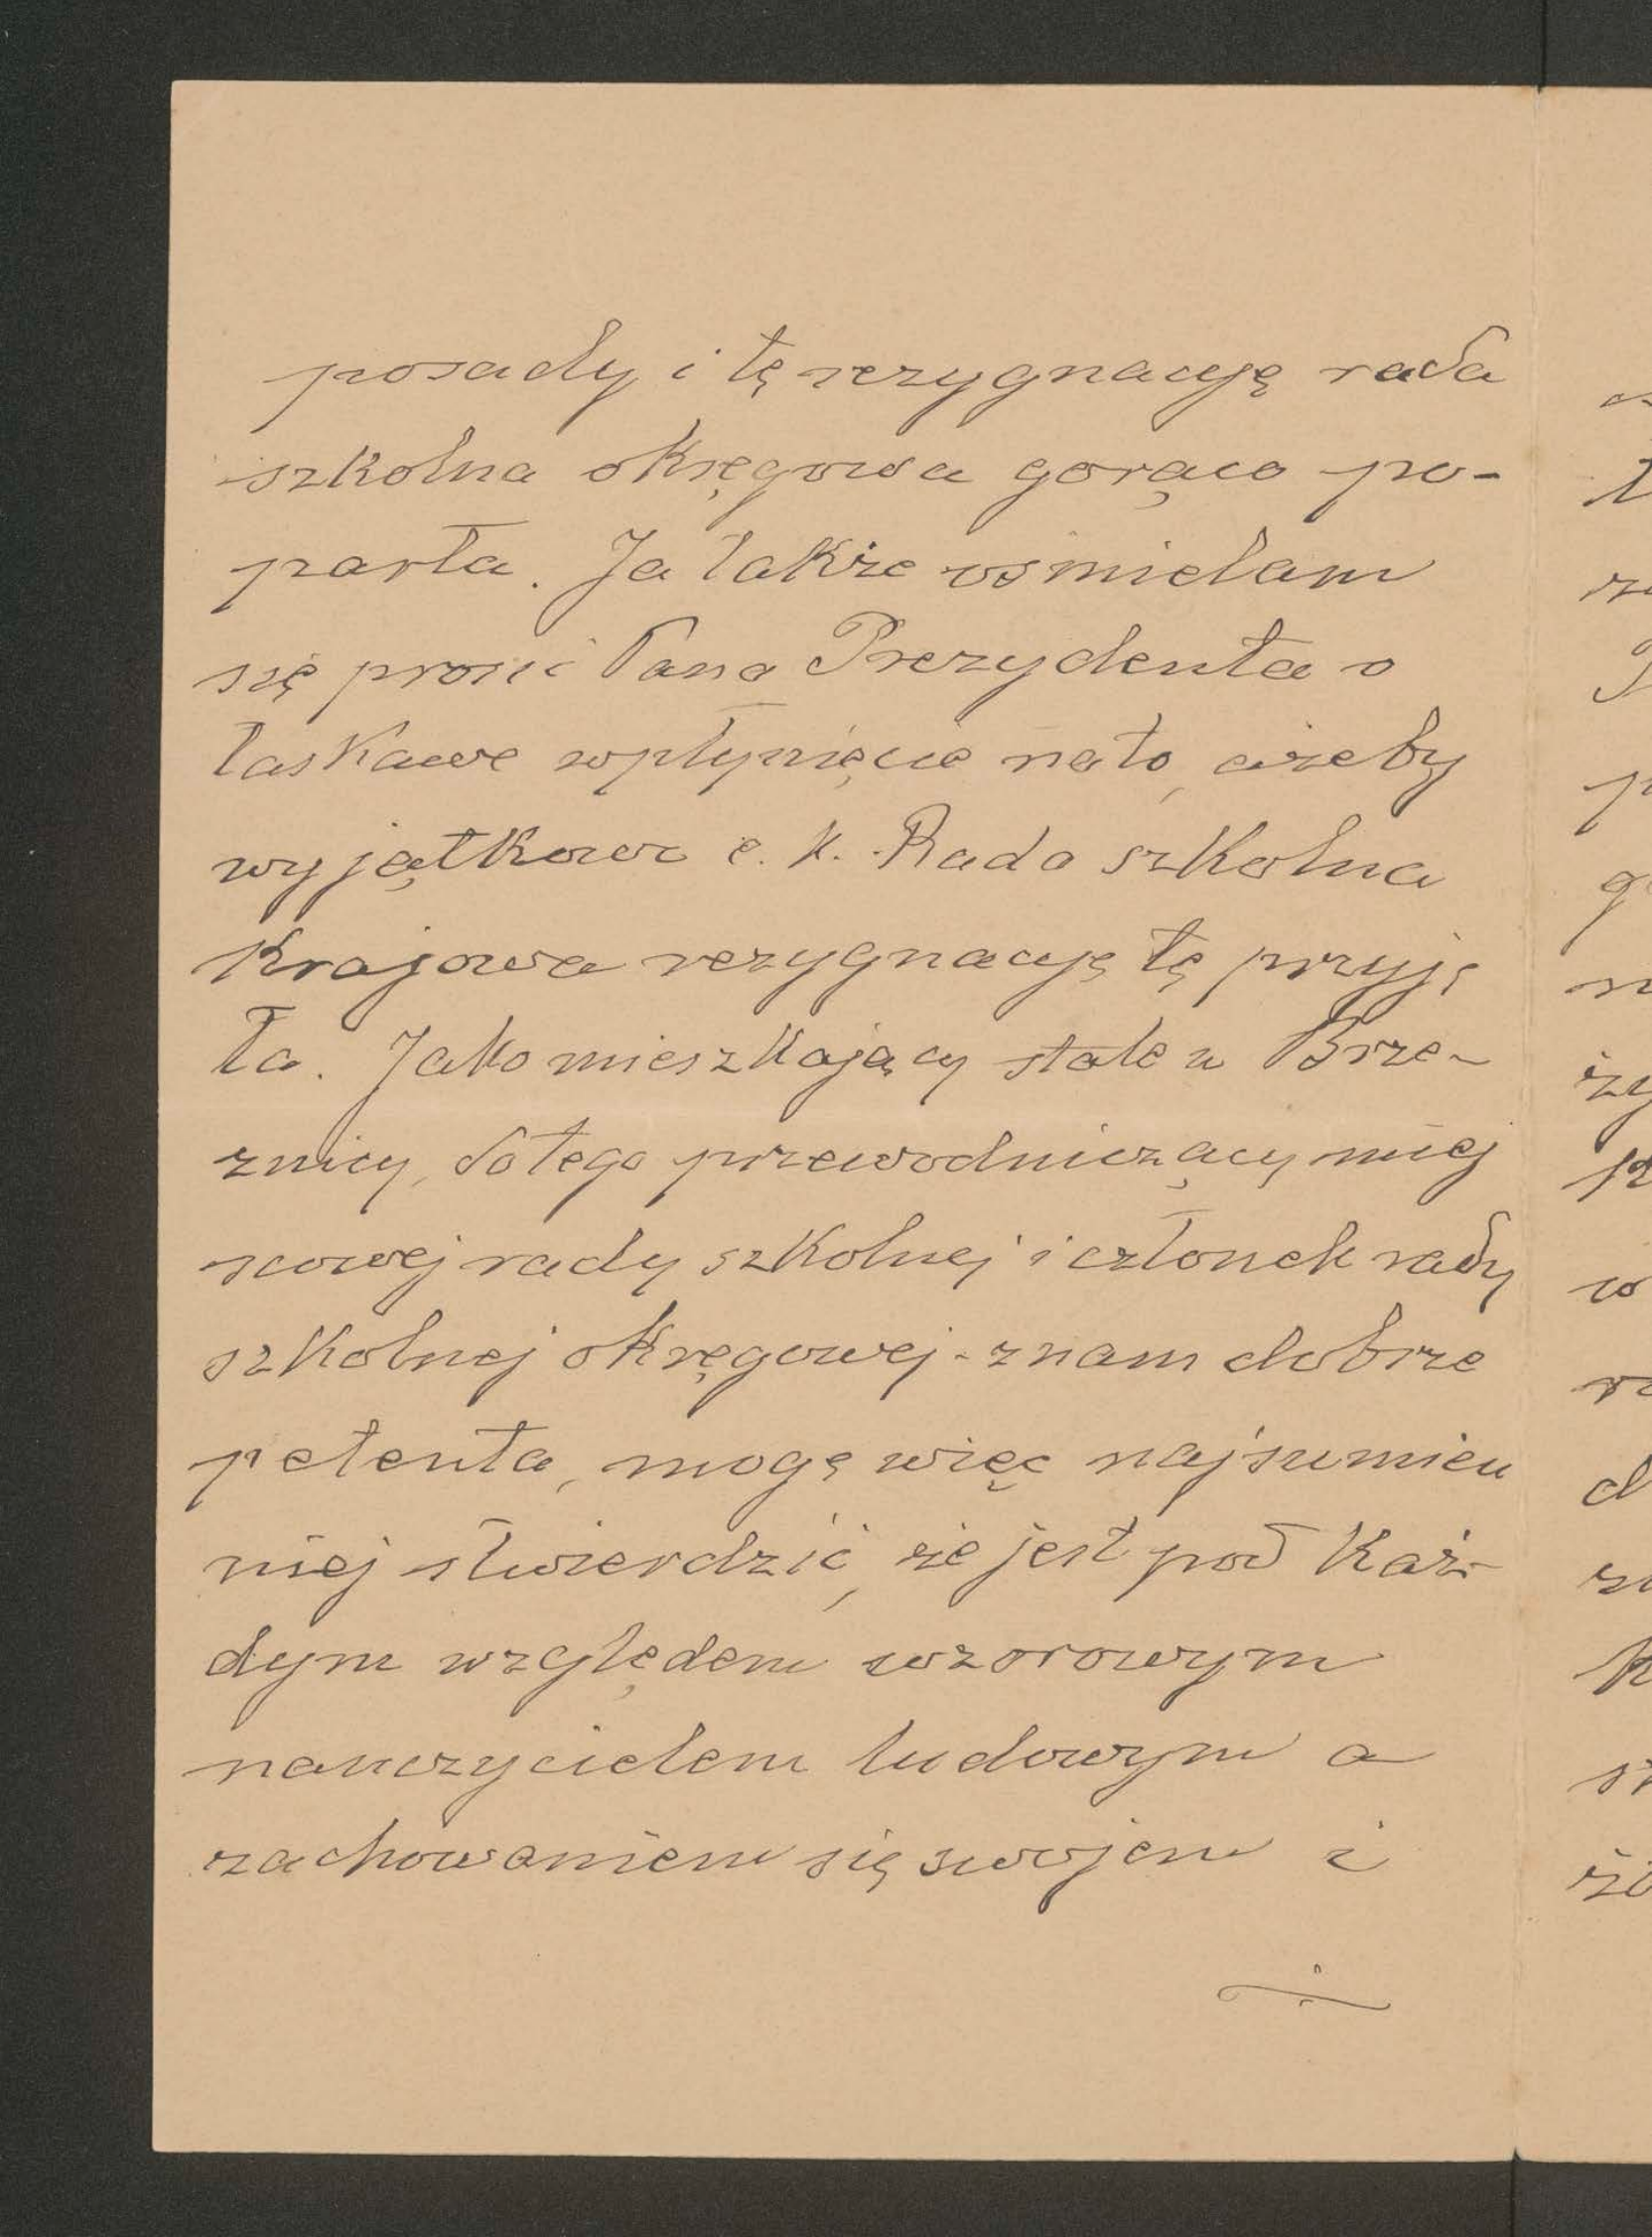 posady i tę rezygnacyę rada
szkolna okręgowa gorąco po-
parła. Ja także ośmielam
się prosić Pana Prezydenta o
łaskawe wpłynięcie na to, ażeby
wyjątkowo c. k. Rada szkolna
krajowa rezygnacyę tę przyję
ła. Jako mieszkający stale w Brze-
znicy, do tego przewodniczący miej
scowej rady szkolnej i członek rady
szkolnej okręgowej - znam dobrze
petenta, mogę więc najsumien
niej stwierdzić, że jest pod każ-
dym względem wzorowym
nauczycielem ludowym a
zachowaniem się swojem i